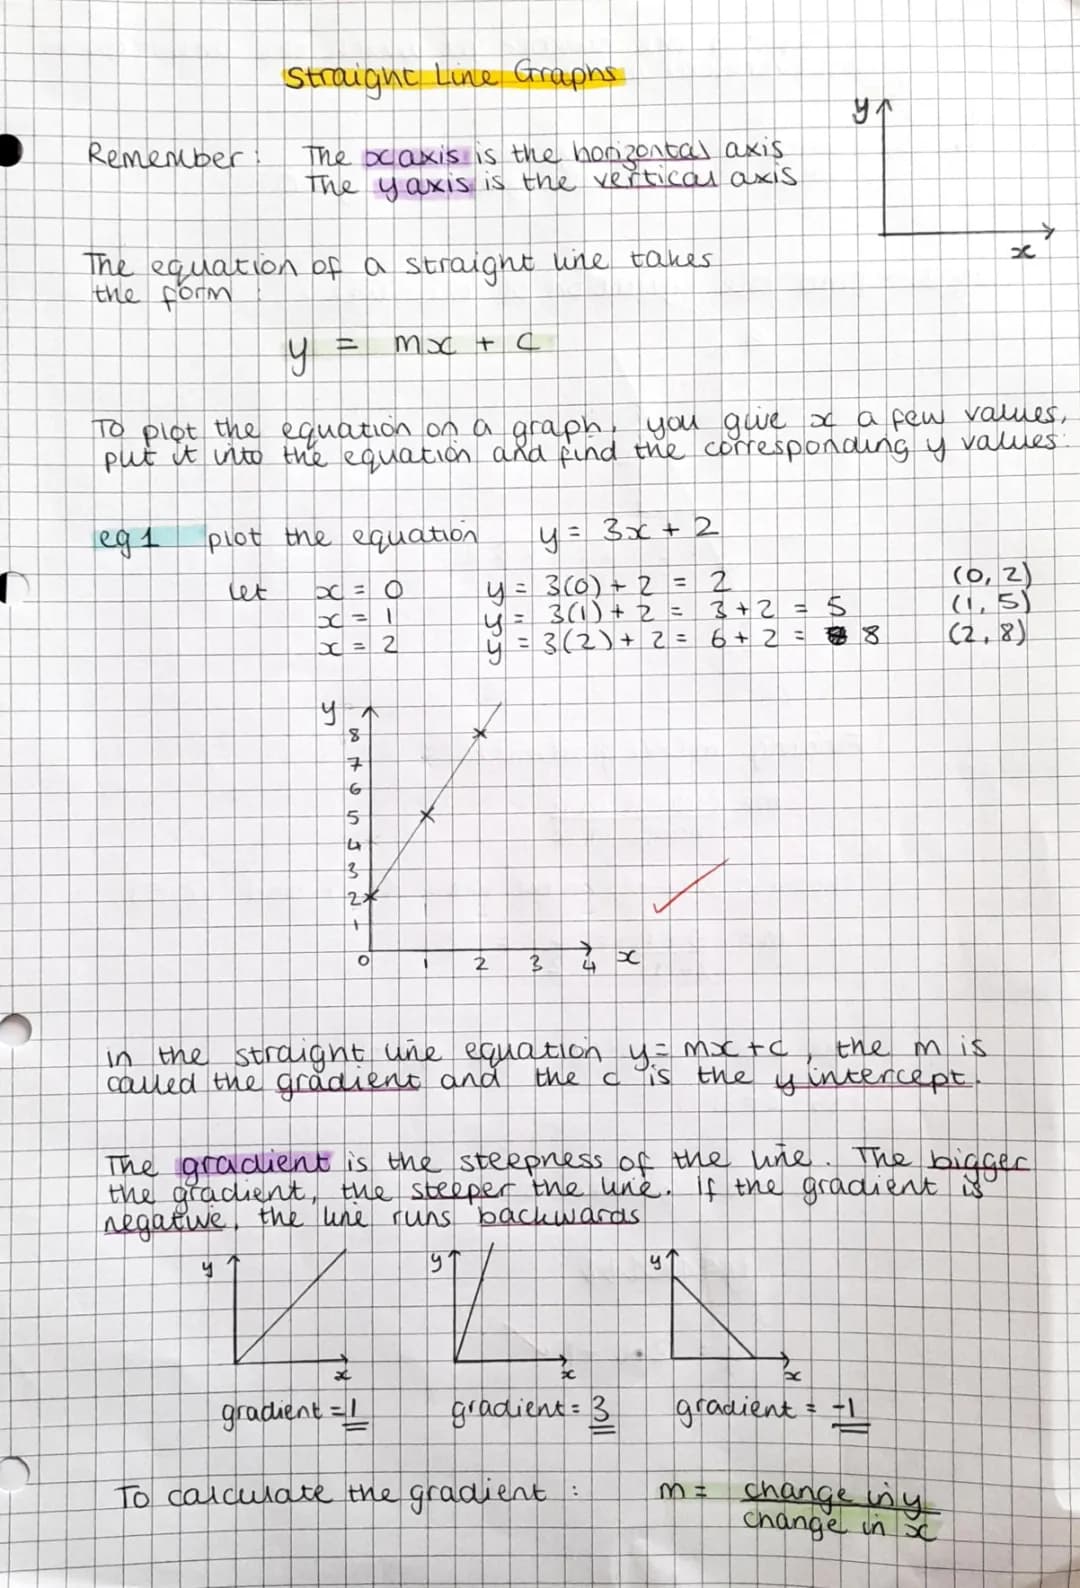 Straight Line Graphs
y
Remember: The x axis is the horizontal axis
The y axis is the vertical axis
x
The equation of a straight line takes
the form
y = mx + c
To plot the equation on a graph, you give x a few values,
put it into the equation and find the corresponding y values:
eg 1 plot the equation y = 3x + 2
Let x = 0 y = 3(0) + 2 = 2 (0, 2)
x = 1 y = 3(1) + 2 = 3 + 2 = 5 (1, 5)
x = 2 y = 3(2) + 2 = 6 + 2 = 8 (2, 8)
y
8
7
6
5
4
3
2
1
0 1 2 3 4 x
in the straight line equation y = mx + c, the m is
called the gradient and the c is the y intercept.
The gradient is the steepness of the line. The bigger
the gradient, the steeper the line. if the gradient is
negative, the line runs backwards
y y y
x x x
gradient = 1 gradient = 3 gradient = -1
To calculate the gradient : m = change in y
change in x